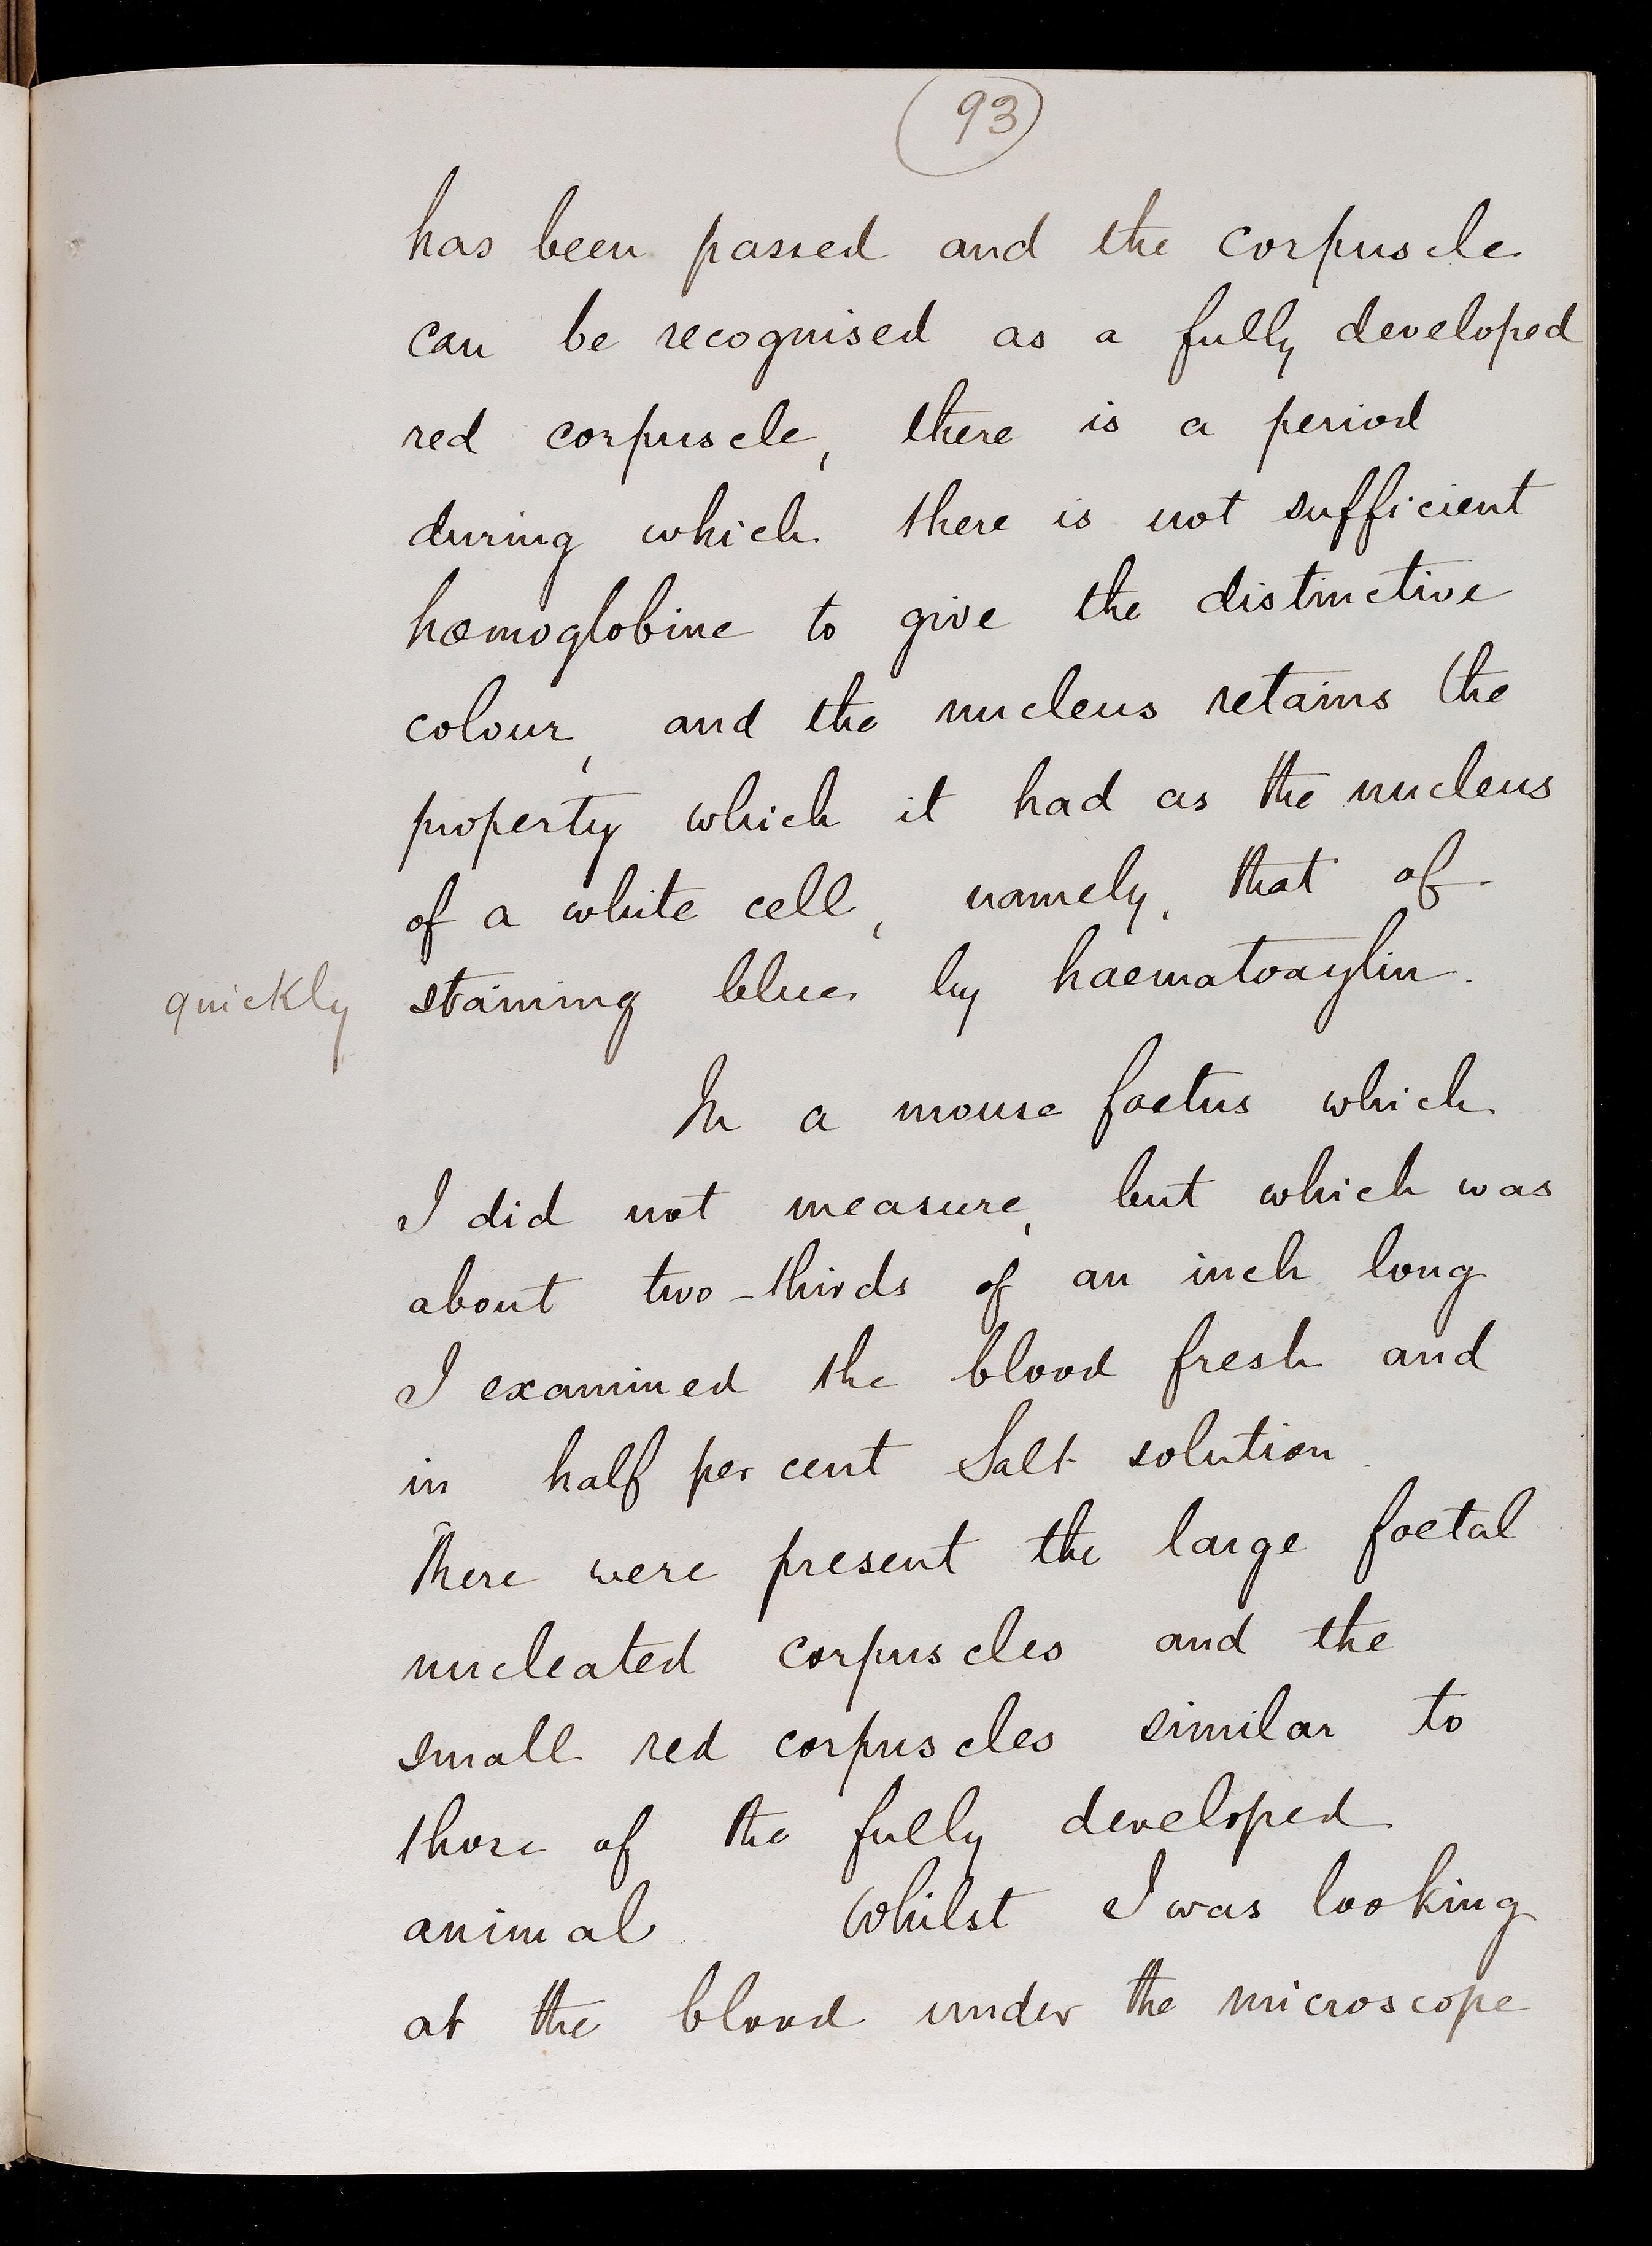 93
has been passed and the corpuscle
can be recognised as a fully developed
red corpuscle, there is a period
during which there is not sufficient
hæmoglobine to give the distinctive
colour, and the nucleus retains the
property which it had as the nucleus
of a white cell, namely, that of
quickly staining blue by haematoxylin.
In a mouse foetus which
I did not measure, but which was
about two-thirds of an inch long
I examined the blood fresh and
in half per cent Salt solution.
There were present the large foetal
nucleated corpuscles and the
small red corpuscles similar to
those of the fully developed
animal. Whilst I was looking
at the blood under the microscope